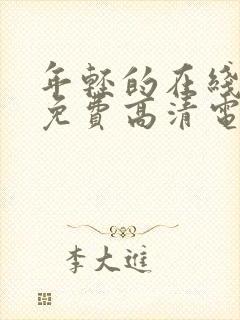 年轻的在线
免費高清電
李大進